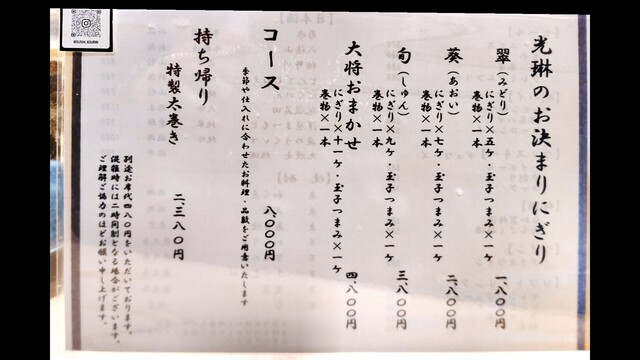 光琳のお決まりにぎり
翠（みどり）
にぎり×五ヶ・玉子つまみ×一ヶ
巻物×一本
一、八〇〇円
葵（あおい）
にぎり×七ヶ・玉子つまみ×一ヶ
巻物×一本
二、八〇〇円
旬（しゅん）
にぎり×九ヶ・玉子つまみ×一ヶ
巻物×一本
三、八〇〇円
大将おまかせ
にぎり×十一ヶ・玉子つまみ×一ヶ
巻物×一本
四、八〇〇円
コース
八、〇〇〇円
季節や仕入れに合わせたお料理・品数をご用意いたします
持ち帰り
特製太巻き
二、三八〇円
別途お席代四八〇円をいただいております。
混雑時には二時間制となる場合がございます。
ご理解ご協力のほどお願い申し上げます。